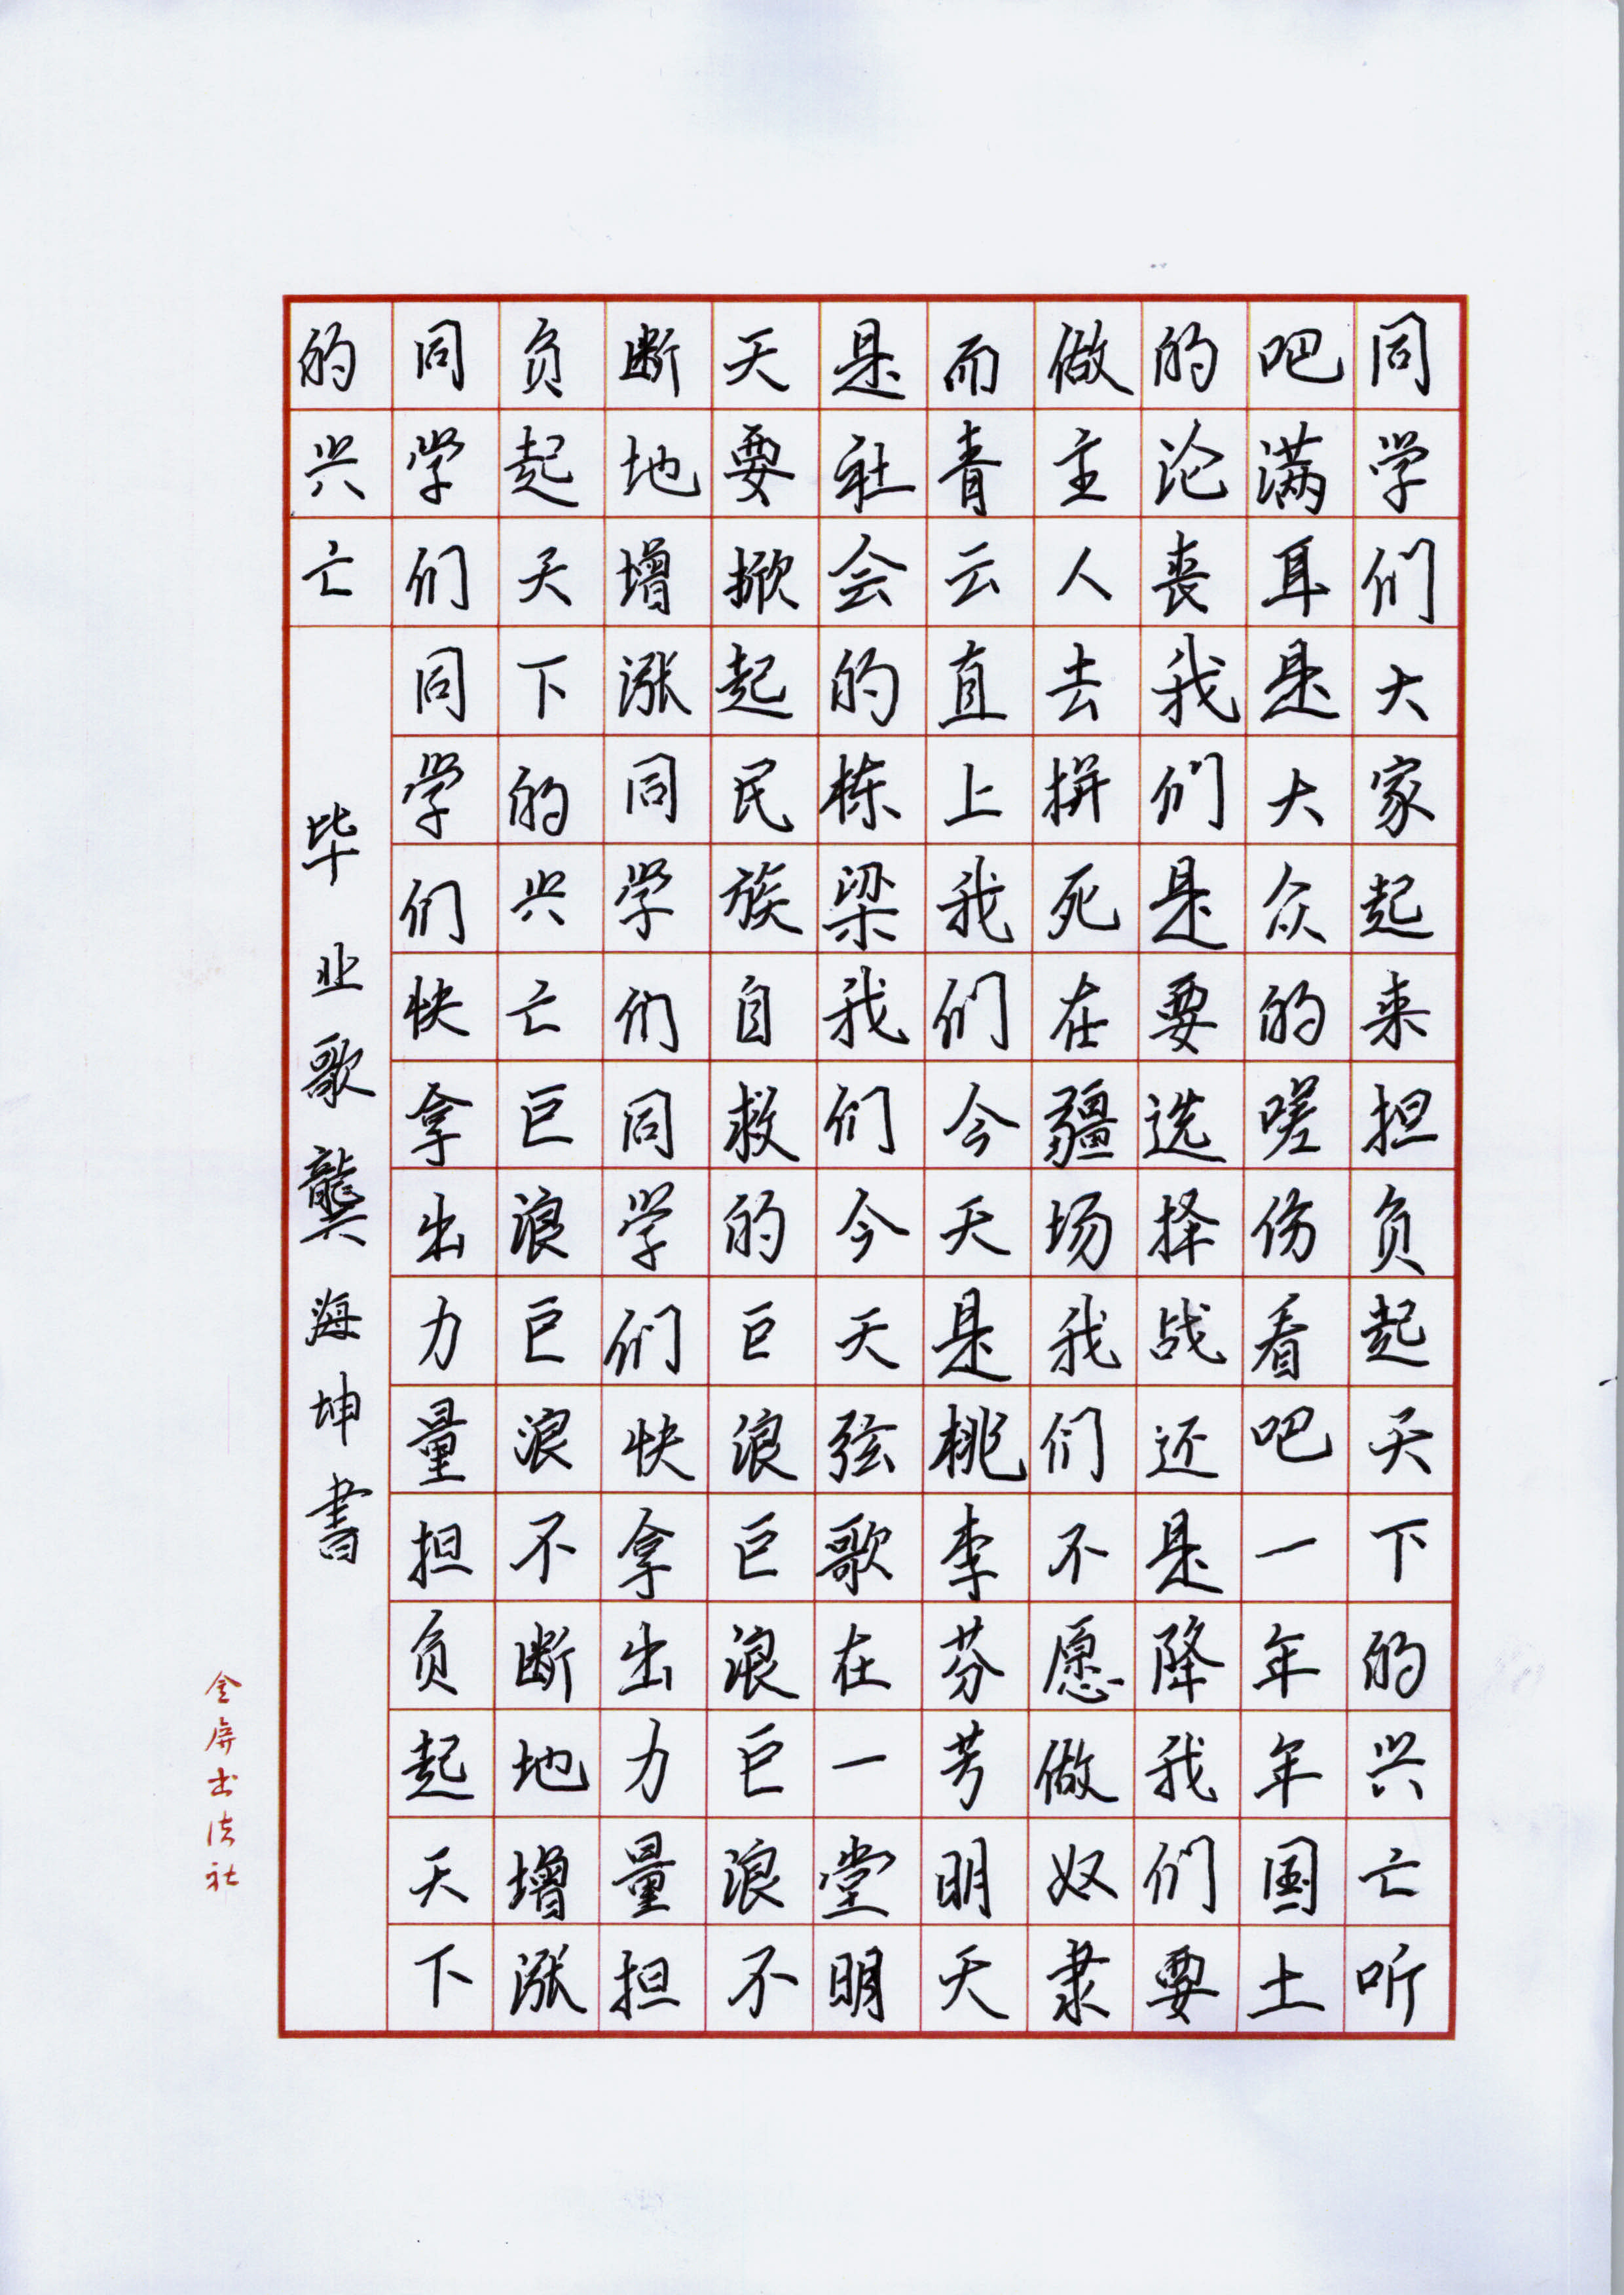 同学们大家起来担负起天下的兴亡听
吧满耳是大众的嗟伤看吧一年年国土
的沦丧我们是要选择战还是降我们要
做主人去拼死在疆场我们不愿做奴隶
而青云直上我们今天是桃李芬芳明天
是社会的栋梁我们今天弦歌在一堂明
天要掀起民族自救的巨浪巨浪巨浪不
断地增涨同学们同学们快拿出力量担
负起天下的兴亡巨浪巨浪不断地增涨
同学们同学们快拿出力量担负起天下
的兴亡
毕业歌龚海坤书
金屏书法社